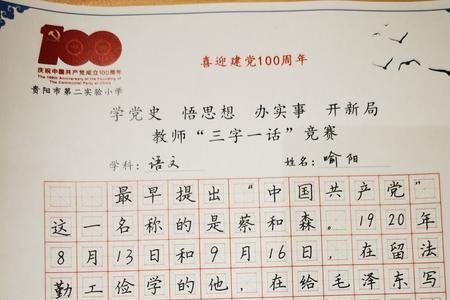 100
庆祝中国共产党成立100周年
The 100th Anniversary of the Founding of
The Communist Party of China
贵阳市第二实验小学
喜迎建党100周年
学党史 悟思想 办实事 开新局
教师“三字一话”竞赛
学科：语文 姓名：喻阳
最早提出“中国共产党”
这一名称的是蔡和森。1920年
8月13日和9月16日，在留法
勤工俭学的他，在给毛泽东写